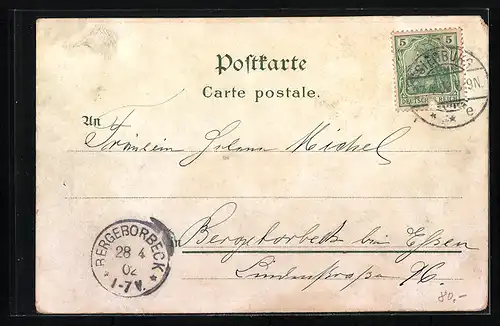 Postkarte
Carte postale.
5 5
DEUTSCHES REICH
9N.
e
An
Fräulein Helene Michel
in Bergeborbeck bei Essen
Lindenstraße
BERGEBORBECK
28 4
02
1-7V.
80.-